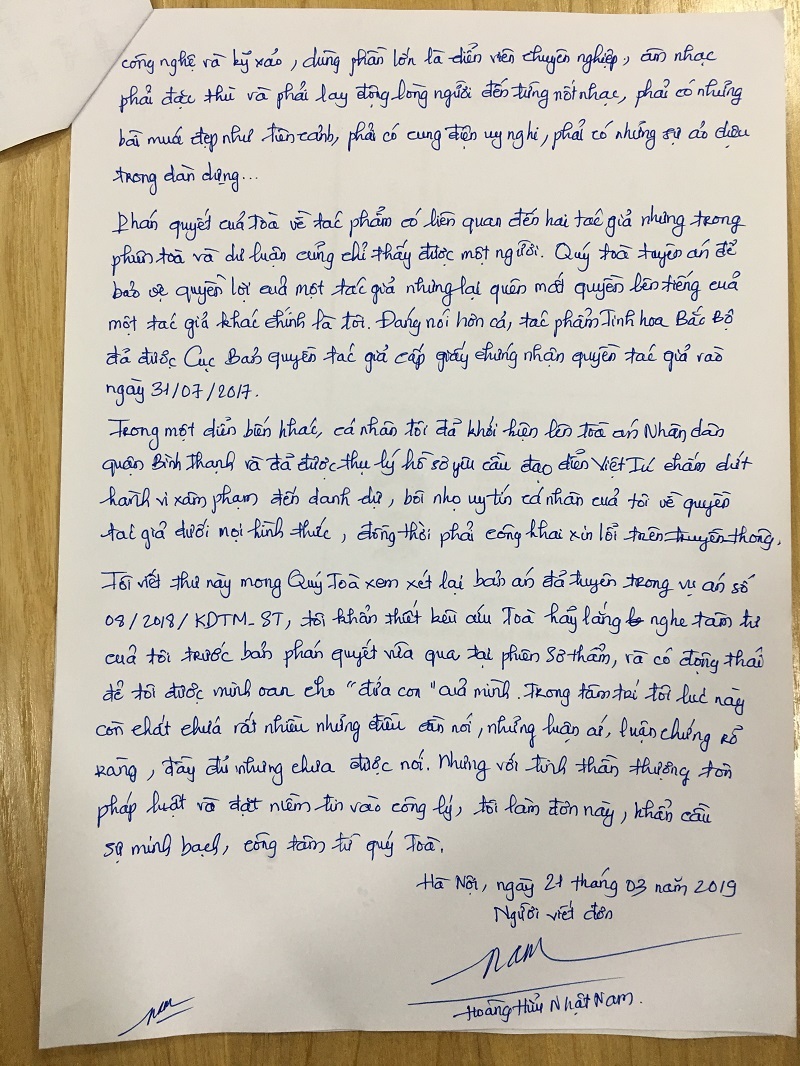 công nghệ và kỹ xảo, dùng phần lớn là diễn viên chuyên nghiệp, âm nhạc
phải đặc thù và phải lay động lòng người đến từng nốt nhạc, phải có những
bài múa đẹp như tiên cảnh, phải có cung điện uy nghi, phải có những sự ảo diệu
trong dàn dựng...
Phán quyết của Toà về tác phẩm có liên quan đến hai tác giả nhưng trong
phiên toà và dư luận cũng chỉ thấy được một người. Quý toà tuyên án để
bảo vệ quyền lợi của một tác giả nhưng lại quên mất quyền lên tiếng của
một tác giả khác chính là tôi. Đáng nói hơn cả, tác phẩm Tinh hoa Bắc Bộ
đã được Cục Bản quyền tác giả cấp giấy chứng nhận quyền tác giả vào
ngày 31/07/2017.
Trong một diễn biến khác, cá nhân tôi đã khởi kiện lên toà án Nhân dân
quận Bình Thạnh và đã được thụ lý hồ sơ yêu cầu đạo diễn Việt Tú chấm dứt
hành vi xâm phạm đến danh dự, bôi nhọ uy tín cá nhân của tôi về quyền
tác giả dưới mọi hình thức, đồng thời phải công khai xin lỗi trên truyền thông.
Tôi viết thư này mong Quý Toà xem xét lại bản án đã tuyên trong vụ án số
08/2018/KDTM_ST, tôi khẩn thiết kêu cứu Toà hãy lắng nghe tâm tư
của tôi trước bản phán quyết vừa qua tại phiên Sơ thẩm, và có động thái
để tôi được minh oan cho "đứa con" của mình. Trong tâm trí tôi lúc này
còn chất chứa rất nhiều những điều cần nói, những luận cứ, luận chứng rõ
ràng, đầy đủ nhưng chưa được nói. Nhưng với tinh thần thượng tôn
pháp luật và đặt niềm tin vào công lý, tôi làm đơn này, khẩn cầu
sự minh bạch, công tâm từ quý Toà.
Hà Nội, ngày 21 tháng 03 năm 2019
Người viết đơn
Nam
Hoàng Thủy Nhật Nam.
Nam